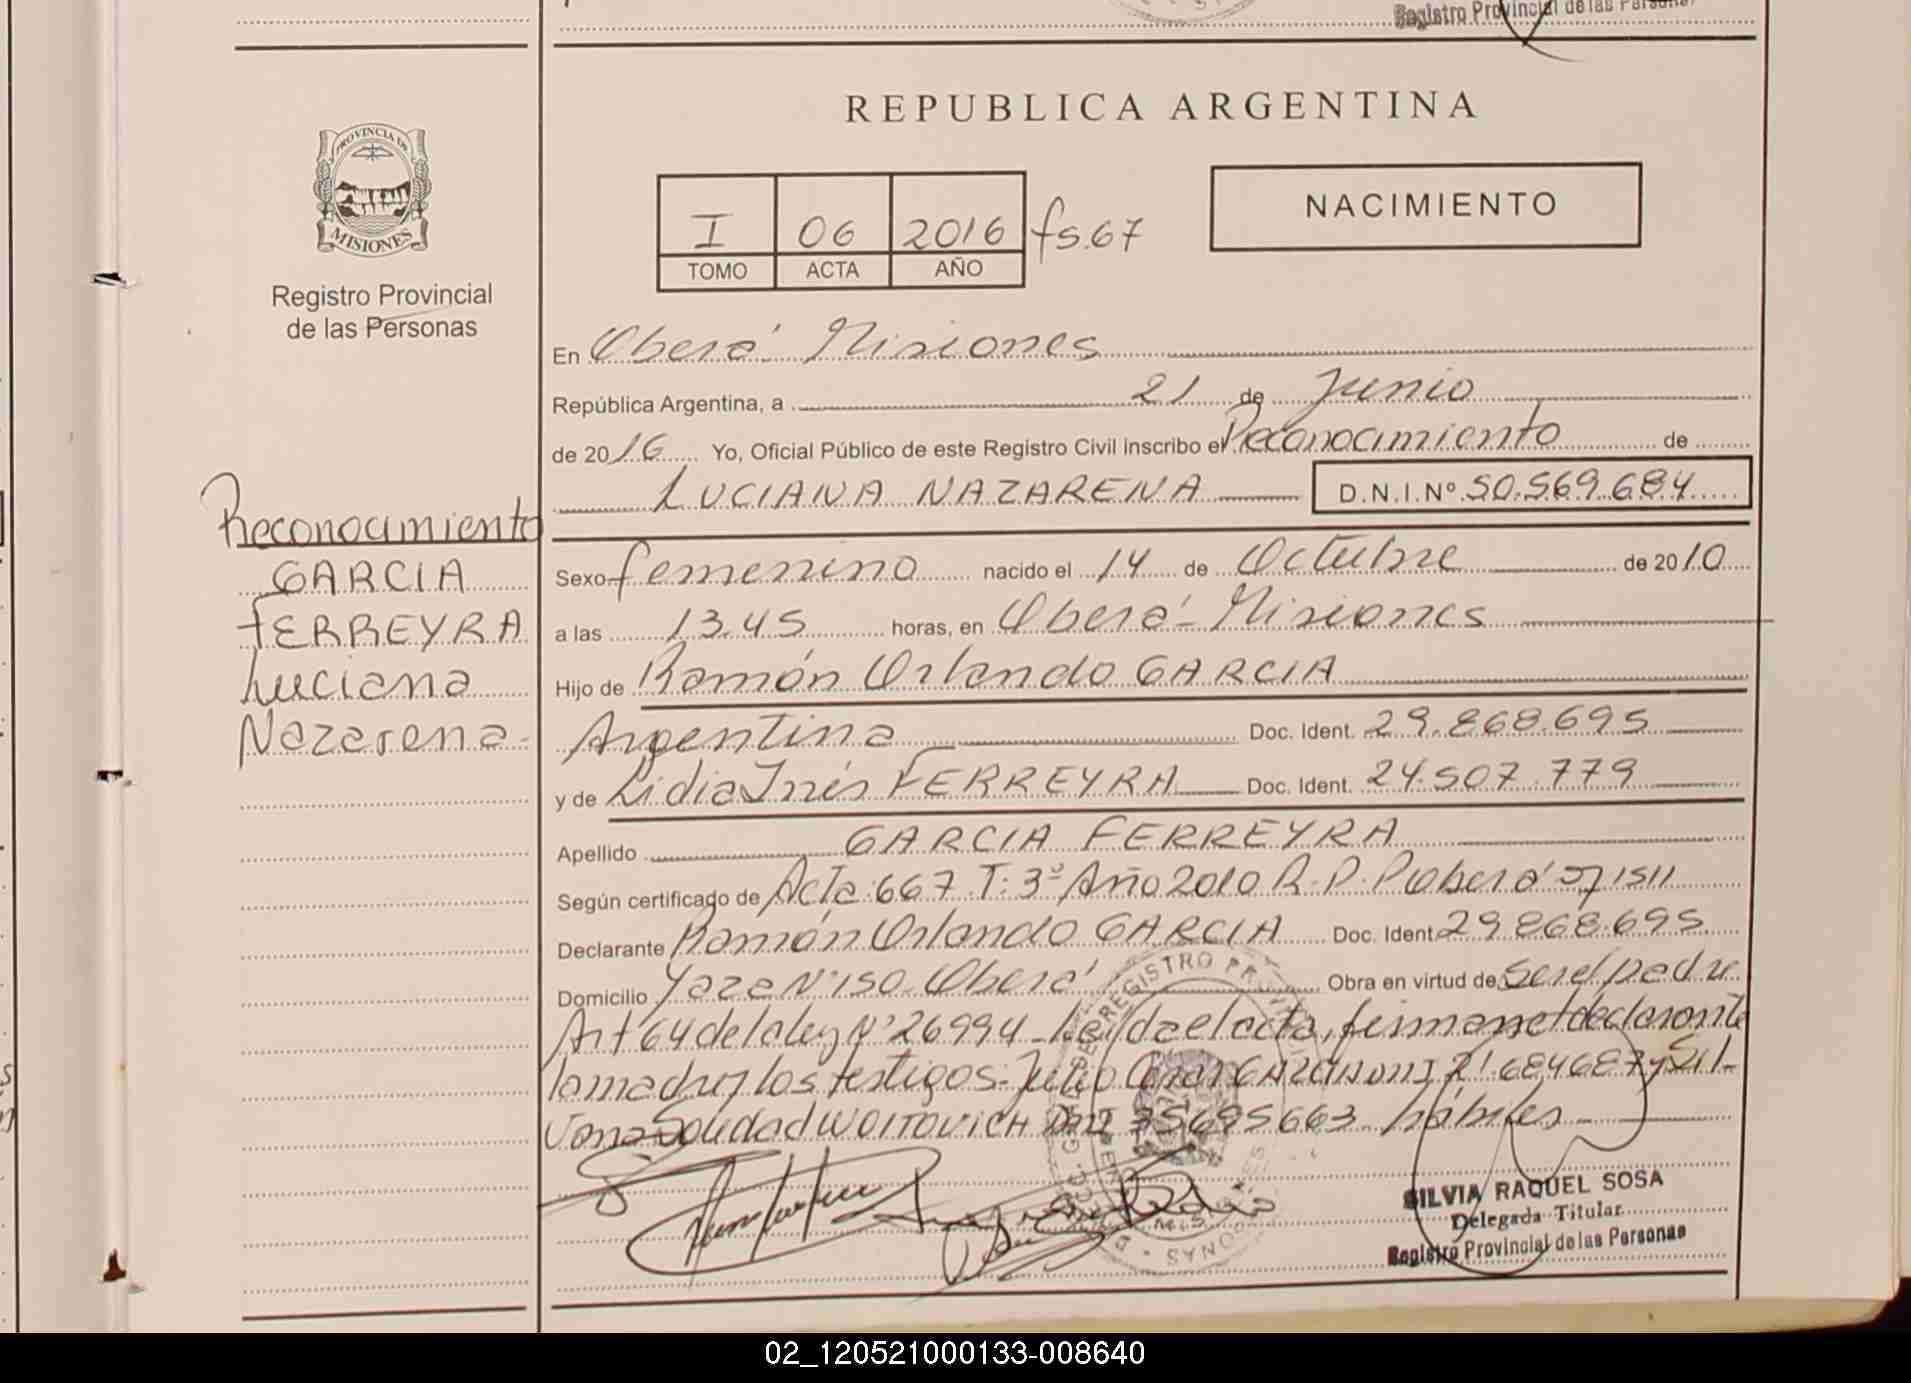 Registro Provincial de las Personas
REPUBLICA ARGENTINA
PROVINCIA DE
MISIONES
Registro Provincial
de las Personas
I 06 2016 fs.67
TOMO ACTA AÑO
NACIMIENTO
En Oberá Misiones
República Argentina, a 21 de Junio
de 2016 Yo, Oficial Público de este Registro Civil inscribo el Reconocimiento de
LUCIANA NAZARENA D.N.I.Nº 50.569.684
Reconocimiento
GARCIA
FERREYRA
Luciana
Nazarena-
Sexo femenino nacido el 14 de Octubre de 2010
a las 13.45 horas, en Oberá - Misiones
Hijo de Ramón Orlando GARCIA
Argentina Doc. Ident. 29.868.695
y de Lidia Inés FERREYRA Doc. Ident. 24.507.779
Apellido GARCIA FERREYRA
Según certificado de Acta 667 T: 3º Año 2010 R.P.P Oberá
Declarante Ramón Orlando GARCIA Doc. Ident 29.868.695
Domicilio N° 150 Oberá Obra en virtud de Ser el padre
Art 64 de la ley N° 26994 - Leída el acta, firman el declarante
la madre y los testigos: Julio César y Sil-
vana Soledad WOITOVICH DNI 35695663 hábiles
SILVIA RAQUEL SOSA
Delegada Titular
Registro Provincial de las Personas
02_120521000133-008640